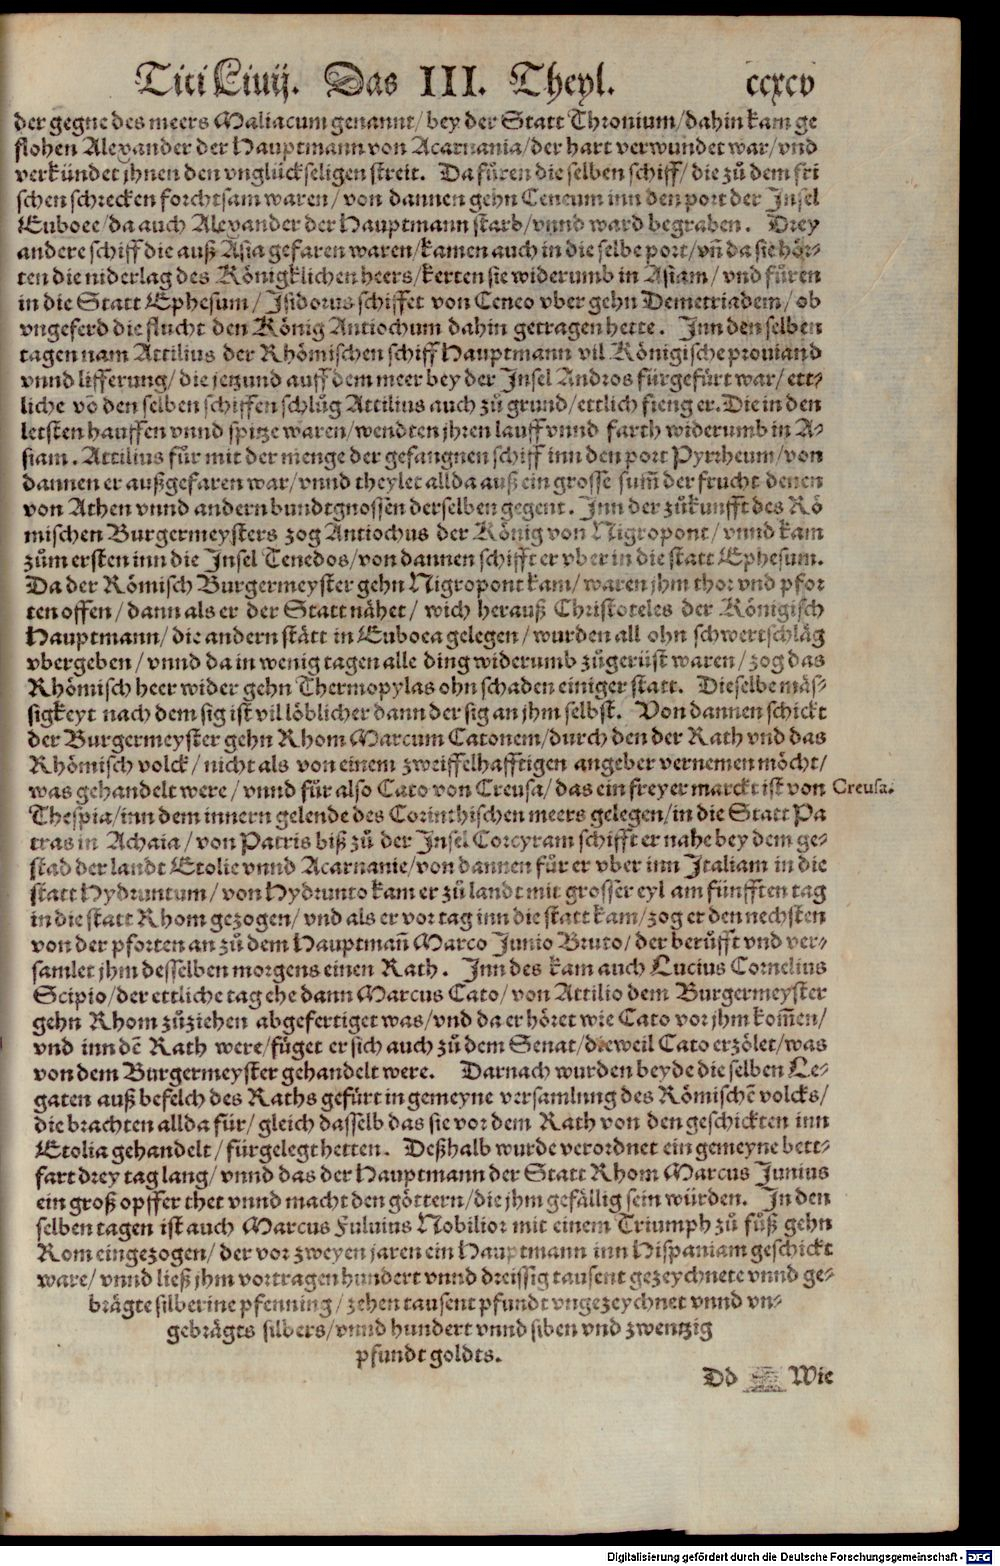 Titi Liuij. Das III. Theyl. ccxcv
der gegne des meers Maliacum genannt/ bey der Statt Thronium/ dahin kam ge
flohen Alexander der Hauptmann von Acarnania/ der hart verwundet war/ vnd
verkündet jhnen den vnglückseligen streit. Da füren die selben schiff/ die zů dem fri
schen schrecken forchtsam waren/ von dannen gehn Ceneum inn den port der Insel
Euboee/ da auch Alexander der Hauptmann starb/ vnnd ward begraben. Drey
andere schiff die auß Asia gefaren waren/ kamen auch in die selbe port/ vñ da sie hör-
ten die niderlag des Königklichen heers/ kerten sie widerumb in Asiam/ vnd füren
in die Statt Ephesum/ Isidorus schiffet von Ceneo vber gehn Demetriadem/ ob
vngeferd die flucht den König Antiochum dahin getragen hette. Inn den selben
tagen nam Attilius der Rhömischen schiff Hauptmann vil Königische prouiand
vnnd lifferung/ die jetzund auff dem meer bey der Insel Andros fürgefürt war/ ett-
liche võ den selben schiffen schlůg Attilius auch zů grund/ ettlich fieng er. Die in den
letsten hauffen vnnd spitze waren/ wendten jhren lauff vnnd farth widerumb in A-
siam. Attilius fůr mit der menge der gefangnen schiff inn den port Pyrrheum/ von
dannen er außgefaren war/ vnnd theylet allda auß ein grosse sum̃ der frucht denen
von Athen vnnd andern bundtgnossen derselben gegent. Inn der zůkunfft des Rö
mischen Burgermeysters zog Antiochus der König von Nigropont/ vnnd kam
zům ersten inn die Insel Tenedos/ von dannen schifft er vber in die statt Ephesum.
Da der Römisch Burgermeyster gehn Nigropont kam/ waren jhm thor vnd pfor
ten offen/ dann als er der Statt nähet/ wich herauß Christoteles der Königisch
Hauptmann/ die andern stätt in Euboea gelegen/ wurden all ohn schwertschläg
vbergeben/ vnnd da in wenig tagen alle ding widerumb zůgerüst waren/ zog das
Rhömisch heer wider gehn Thermopylas ohn schaden einiger statt. Dieselbe mäs-
sigkeyt nach dem sig ist vil löblicher dann der sig an jhm selbst. Von dannen schickt
der Burgermeyster gehn Rhom Marcum Catonem/ durch den der Rath vnd das
Rhömisch volck/ nicht als von einem zweiffelhafftigen angeber vernemen möcht/
was gehandelt were/ vnnd fůr also Cato von Creusa/ das ein freyer marckt ist von Creusa.
Thespia/ inn dem innern gelende des Corinthischen meers gelegen/ in die Statt Pa
tras in Achaia/ von Patris biß zů der Insel Corcyram schifft er nahe bey dem ge-
stad der landt Etolie vnnd Acarnanie/ von dannen fůr er vber inn Italiam in die
statt Hydruntum/ von Hydrunto kam er zů landt mit grosser eyl am fünfften tag
in die statt Rhom gezogen/ vnd als er vor tag inn die statt kam/ zog er den nechsten
von der pforten an zů dem Hauptmañ Marco Junio Bruto/ der berůfft vnd ver-
samlet jhm desselben morgens einen Rath. Inn des kam auch Lucius Cornelius
Scipio/ der ettliche tag ehe dann Marcus Cato/ von Attilio dem Burgermeyster
gehn Rhom zůziehen abgefertiget was/ vnd da er höret wie Cato vor jhm kom̃en/
vnd inn dẽ Rath were/ füget er sich auch zů dem Senat/ dieweil Cato erzölet/ was
von dem Burgermeyster gehandelt were. Darnach wurden beyde die selben Le-
gaten auß befelch des Raths gefürt in gemeyne versamlung des Römischẽ volcks/
die brachten allda für/ gleich dasselb das sie vor dem Rath von den geschickten inn
Etolia gehandelt/ fürgelegt hetten. Deßhalb wurde verordnet ein gemeyne bett-
fart drey tag lang/ vnnd das der Hauptmann der Statt Rhom Marcus Junius
ein groß opffer thet vnnd macht den göttern/ die jhm gefällig sein würden. In den
selben tagen ist auch Marcus Fuluius Nobilior mit einem Triumph zů fůß gehn
Rom eingezogen/ der vor zweyen jaren ein Hauptmann inn Hispaniam geschickt
ware/ vnnd ließ jhm vortragen hundert vnnd dreissig tausent gezeychnete vnnd ge-
brägte silberine pfenning/ zehen tausent pfundt vngezeychnet vnnd vn-
gebrägts silbers/ vnnd hundert vnnd siben vnd zwentzig
pfundt goldts.
Dd Wie
Digitalisierung gefördert durch die Deutsche Forschungsgemeinschaft - DFG